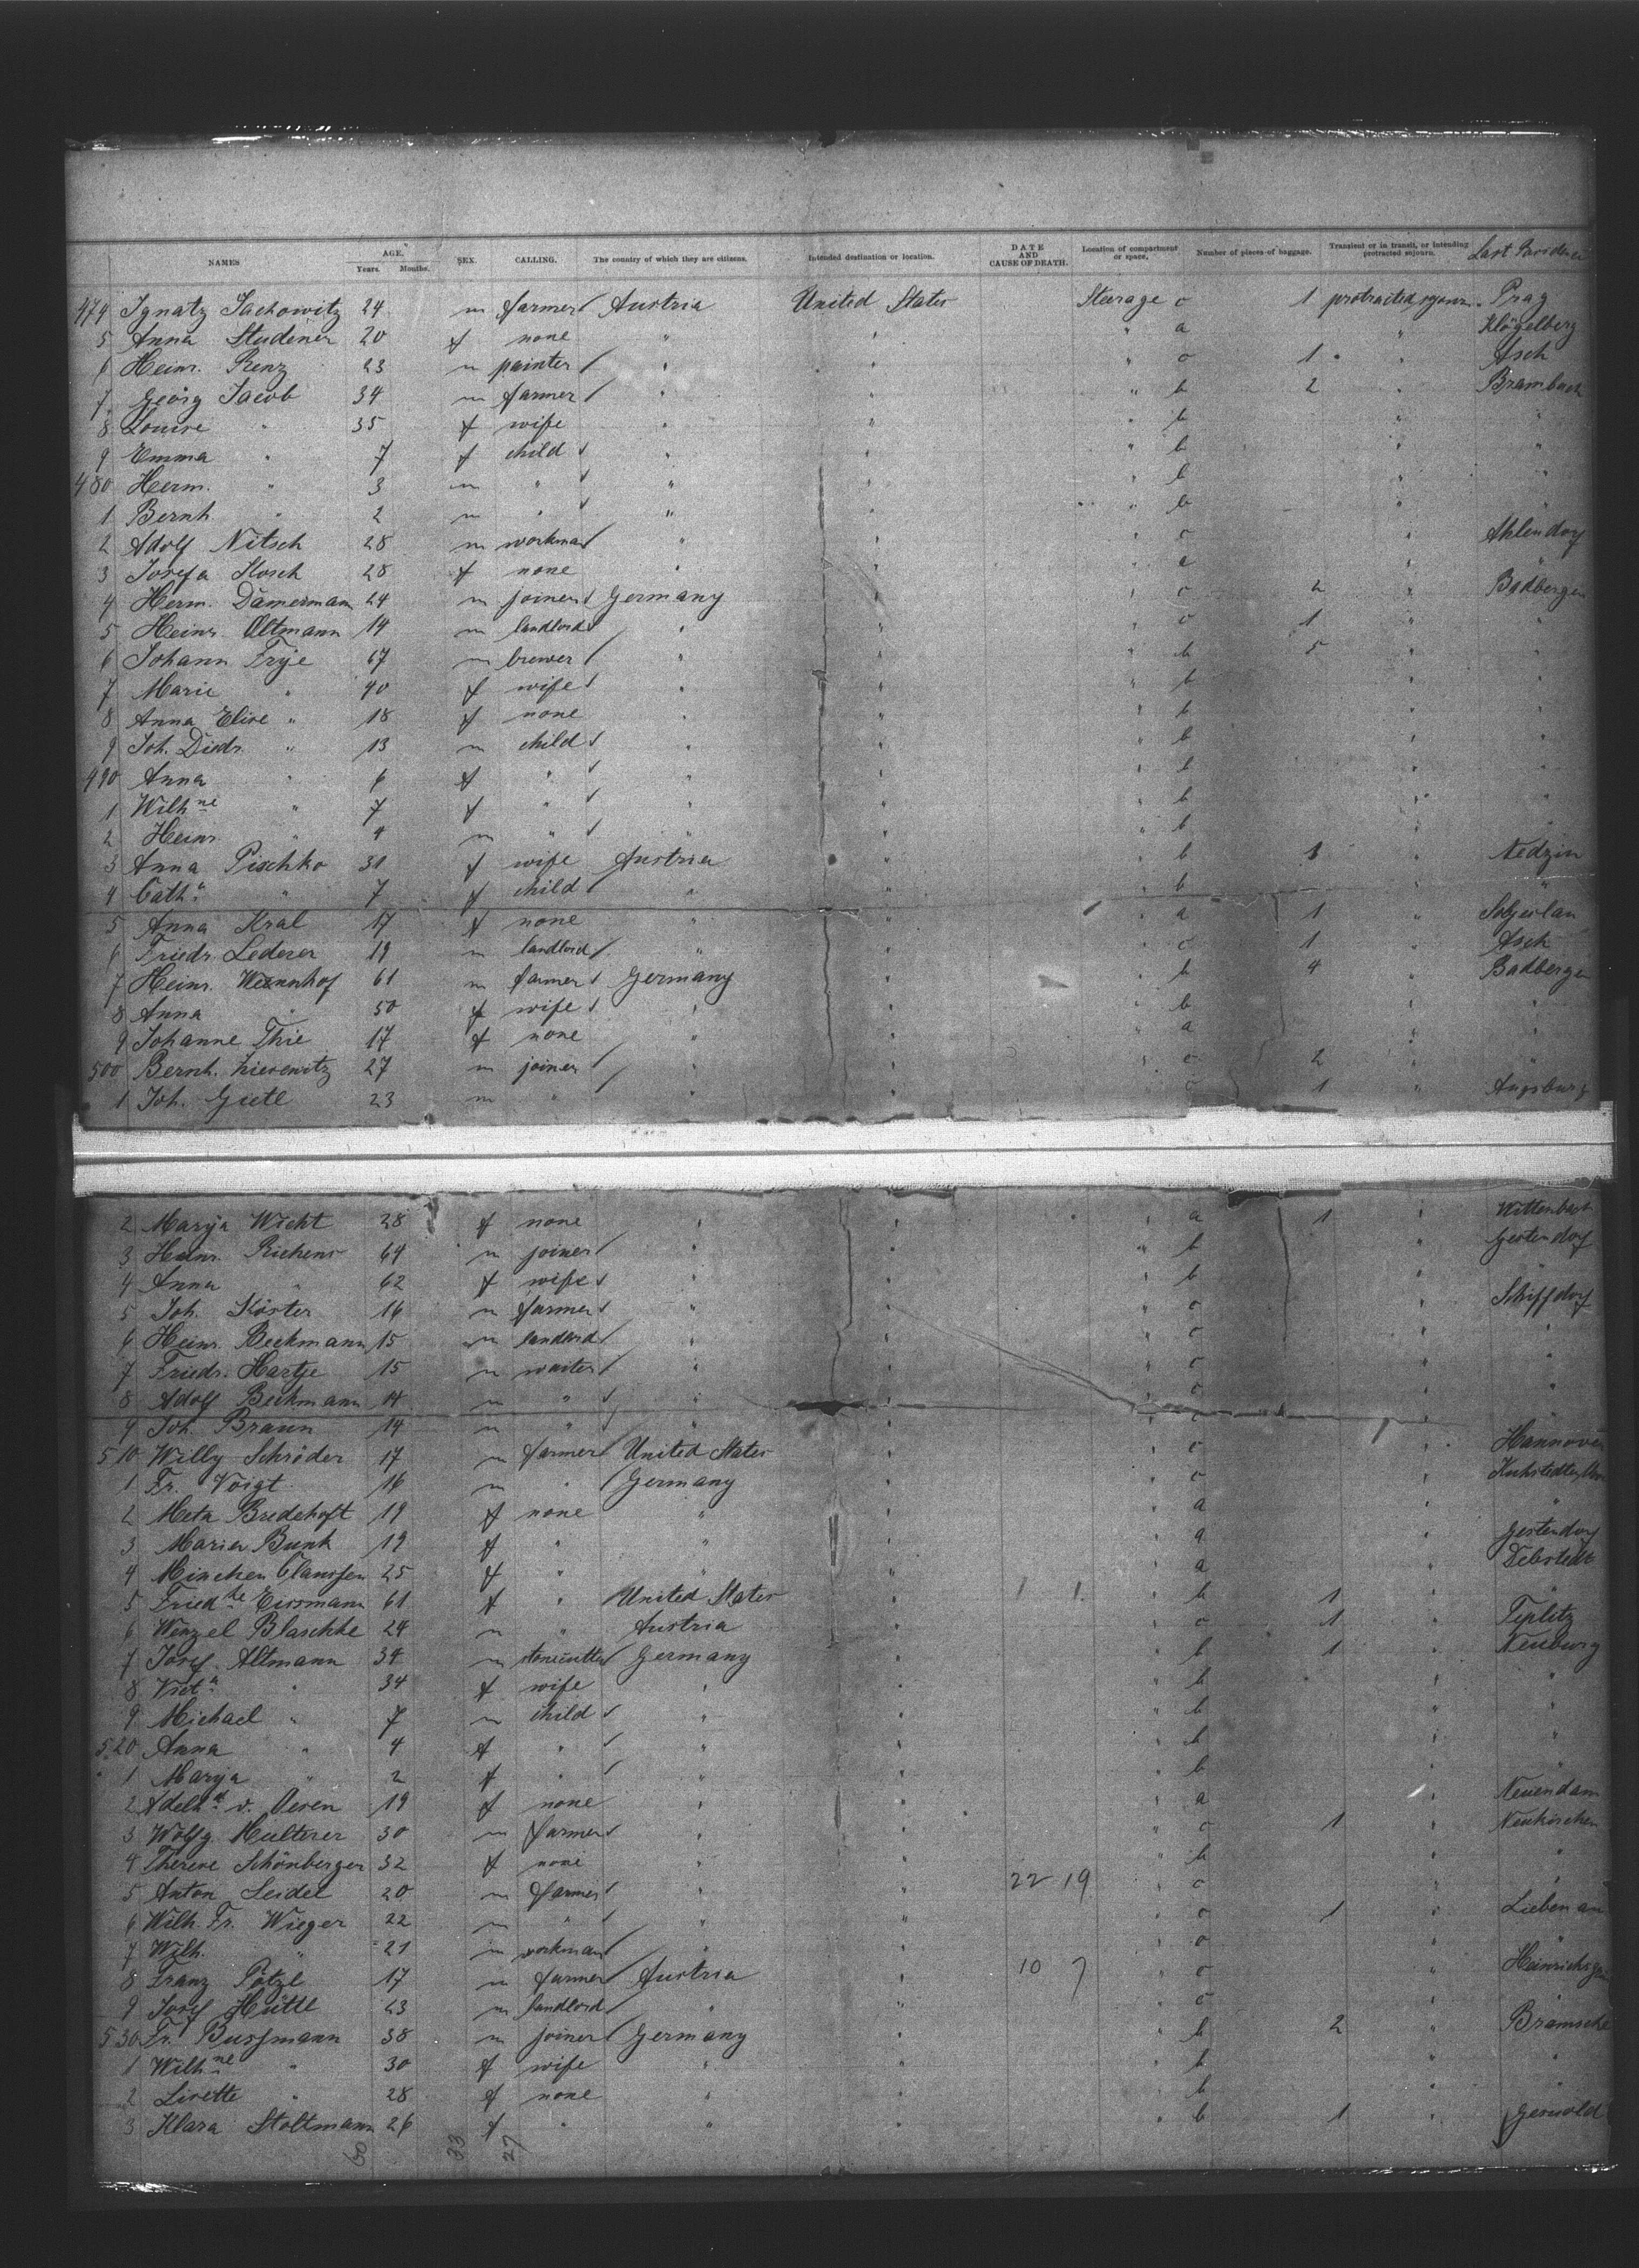 NAMES AGE. Years. Months. SEX. CALLING. The country of which they are citizens. Intended destination or location. DATE AND CAUSE OF DEATH. Location of compartment or space. Number of pieces of baggage. Transient or in transit, or intending protracted sojourn. Last Residence
474 Ignatz Sachowitz 24 m farmer Austria United States Steerage c 1 protracted sojourn Prag
5 Anna Studener 20 f none " " " a " Klögelberg
6 Heinr. Renz 23 m painter " " " c 1 " Asch
7 Georg Jacob 34 m farmer " " " b 2 " Brambach
8 Louise " 35 f wife " " " b " "
9 Emma " 7 f child " " " b " "
480 Herm. " 3 m " " " " b " "
1 Bernh. " 2 m " " " " b " "
2 Adolf Nitsch 28 m workman " " " c " Ahlendorf
3 Josefa Kosch 28 f none " " " a " "
4 Herm. Damermann 24 m joiner Germany " " c 2 " Badbergen
5 Heinr. Oltmann 14 m landlord " " " c 1 " "
6 Johann Frye 67 m brewer " " " b 5 " "
7 Marie " 40 f wife " " " b " "
8 Anna Elise " 18 f none " " " b " "
9 Joh. Diedr. " 13 m child " " " b " "
490 Anna " 6 f " " " " b " "
1 Wilhne " 7 f " " " " b " "
2 Heinr. " 4 m " " " " b " "
3 Anna Pischko 31 f wife Austria " " b 1 " Nedzin
4 Catha " 7 f child " " " b " "
5 Anna Kral 17 f none " " " a 1 "
6 Friedr. Lederer 19 m landlord " " " c 1 " Asch
7 Heinr. Wennhof 61 m farmer Germany " " b 4 " Badbergen
8 Anna " 50 f wife " " " b " "
9 Johanne Thie 17 f none " " " a " "
500 Bernh. 27 m joiner " " " c 2 " "
1 Joh. Gietl 23 m " " " " c 1 " Augsburg
2 Marya Wicht 28 f none " " " a 1 "
3 Heinr. Rickens 64 m joiner " " " b " Gestendorf
4 Anna " 62 f wife " " " b " "
5 Joh. Köster 16 m farmer " " " c " Schiffdorf
6 Heinr. Beckmann 15 m landlord " " " c " "
7 Friedr. Hartje 15 m waiter " " " c " "
8 Adolf Beckmann 14 m " " " " c " "
9 Joh. Braun 14 m " " " " c " "
510 Willy Schröder 17 m farmer United States " " c " Hannover
1 Fr. Voigt 16 m " Germany " " c "
2 Meta Bredehoft 19 f none " " " a " "
3 Maria Bunk 19 f " " " " a " Gestendorf
4 Minchen Claussen 25 f " " " " a " Debstedt
5 Friedke Eissmann 61 f " United States " " b 1 " "
6 Wenzel Blaschke 24 m " Austria " " c 1 " Teplitz
7 Josef Altmann 34 m stonecutter Germany " " b 1 " Neuburg
8 Victa " 34 f wife " " " b " "
9 Michael " 7 m child " " " b " "
520 Anna " 4 f " " " " b " "
1 Marya " 2 f " " " " b " "
2 Adelhd v. Oesen 19 f none " " " a " Neuendam
3 Wolfg. Multerer 30 m farmer " " " c 1 " Neukirchen
4 Therese Schönberger 32 f none " " " b " "
5 Anton Seidel 20 m farmer " " 22 19 " c " "
6 Wilh. Fr. Wieger 22 m " " " " c 1 " Liebenau
7 Wilh. " 21 m workman " " " c "
8 Franz Pötzl 17 m farmer Austria " 10 7 " c "
9 Josef Hüttl 23 m landlord " " " c " "
530 Fr. Bussmann 38 m joiner Germany " " b 2 " Bramsche
1 Wilhne " 30 f wife " " " b " "
2 Lisette " 28 f none " " " b " "
3 Klara Stoltmann 26 f " " " " b 1 " Gerwold
60 33 27